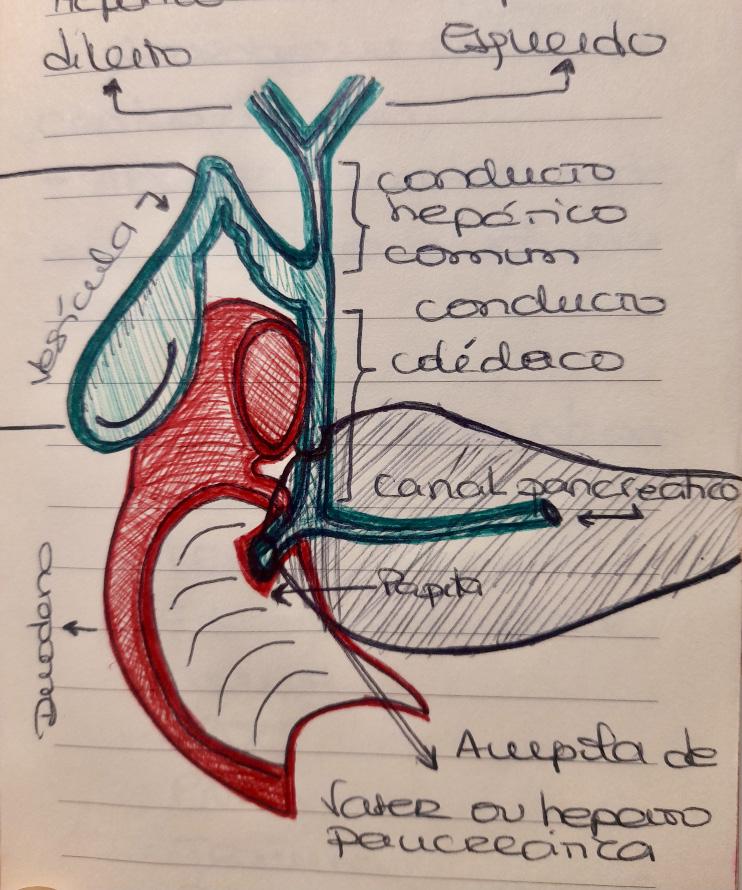 direito
Esquerdo
conducto
hepático
comum
Vesícula
conducto
colédoco
canal pancreático
Papila
Duodeno
Ampola de
Vater ou hepato
pancreática